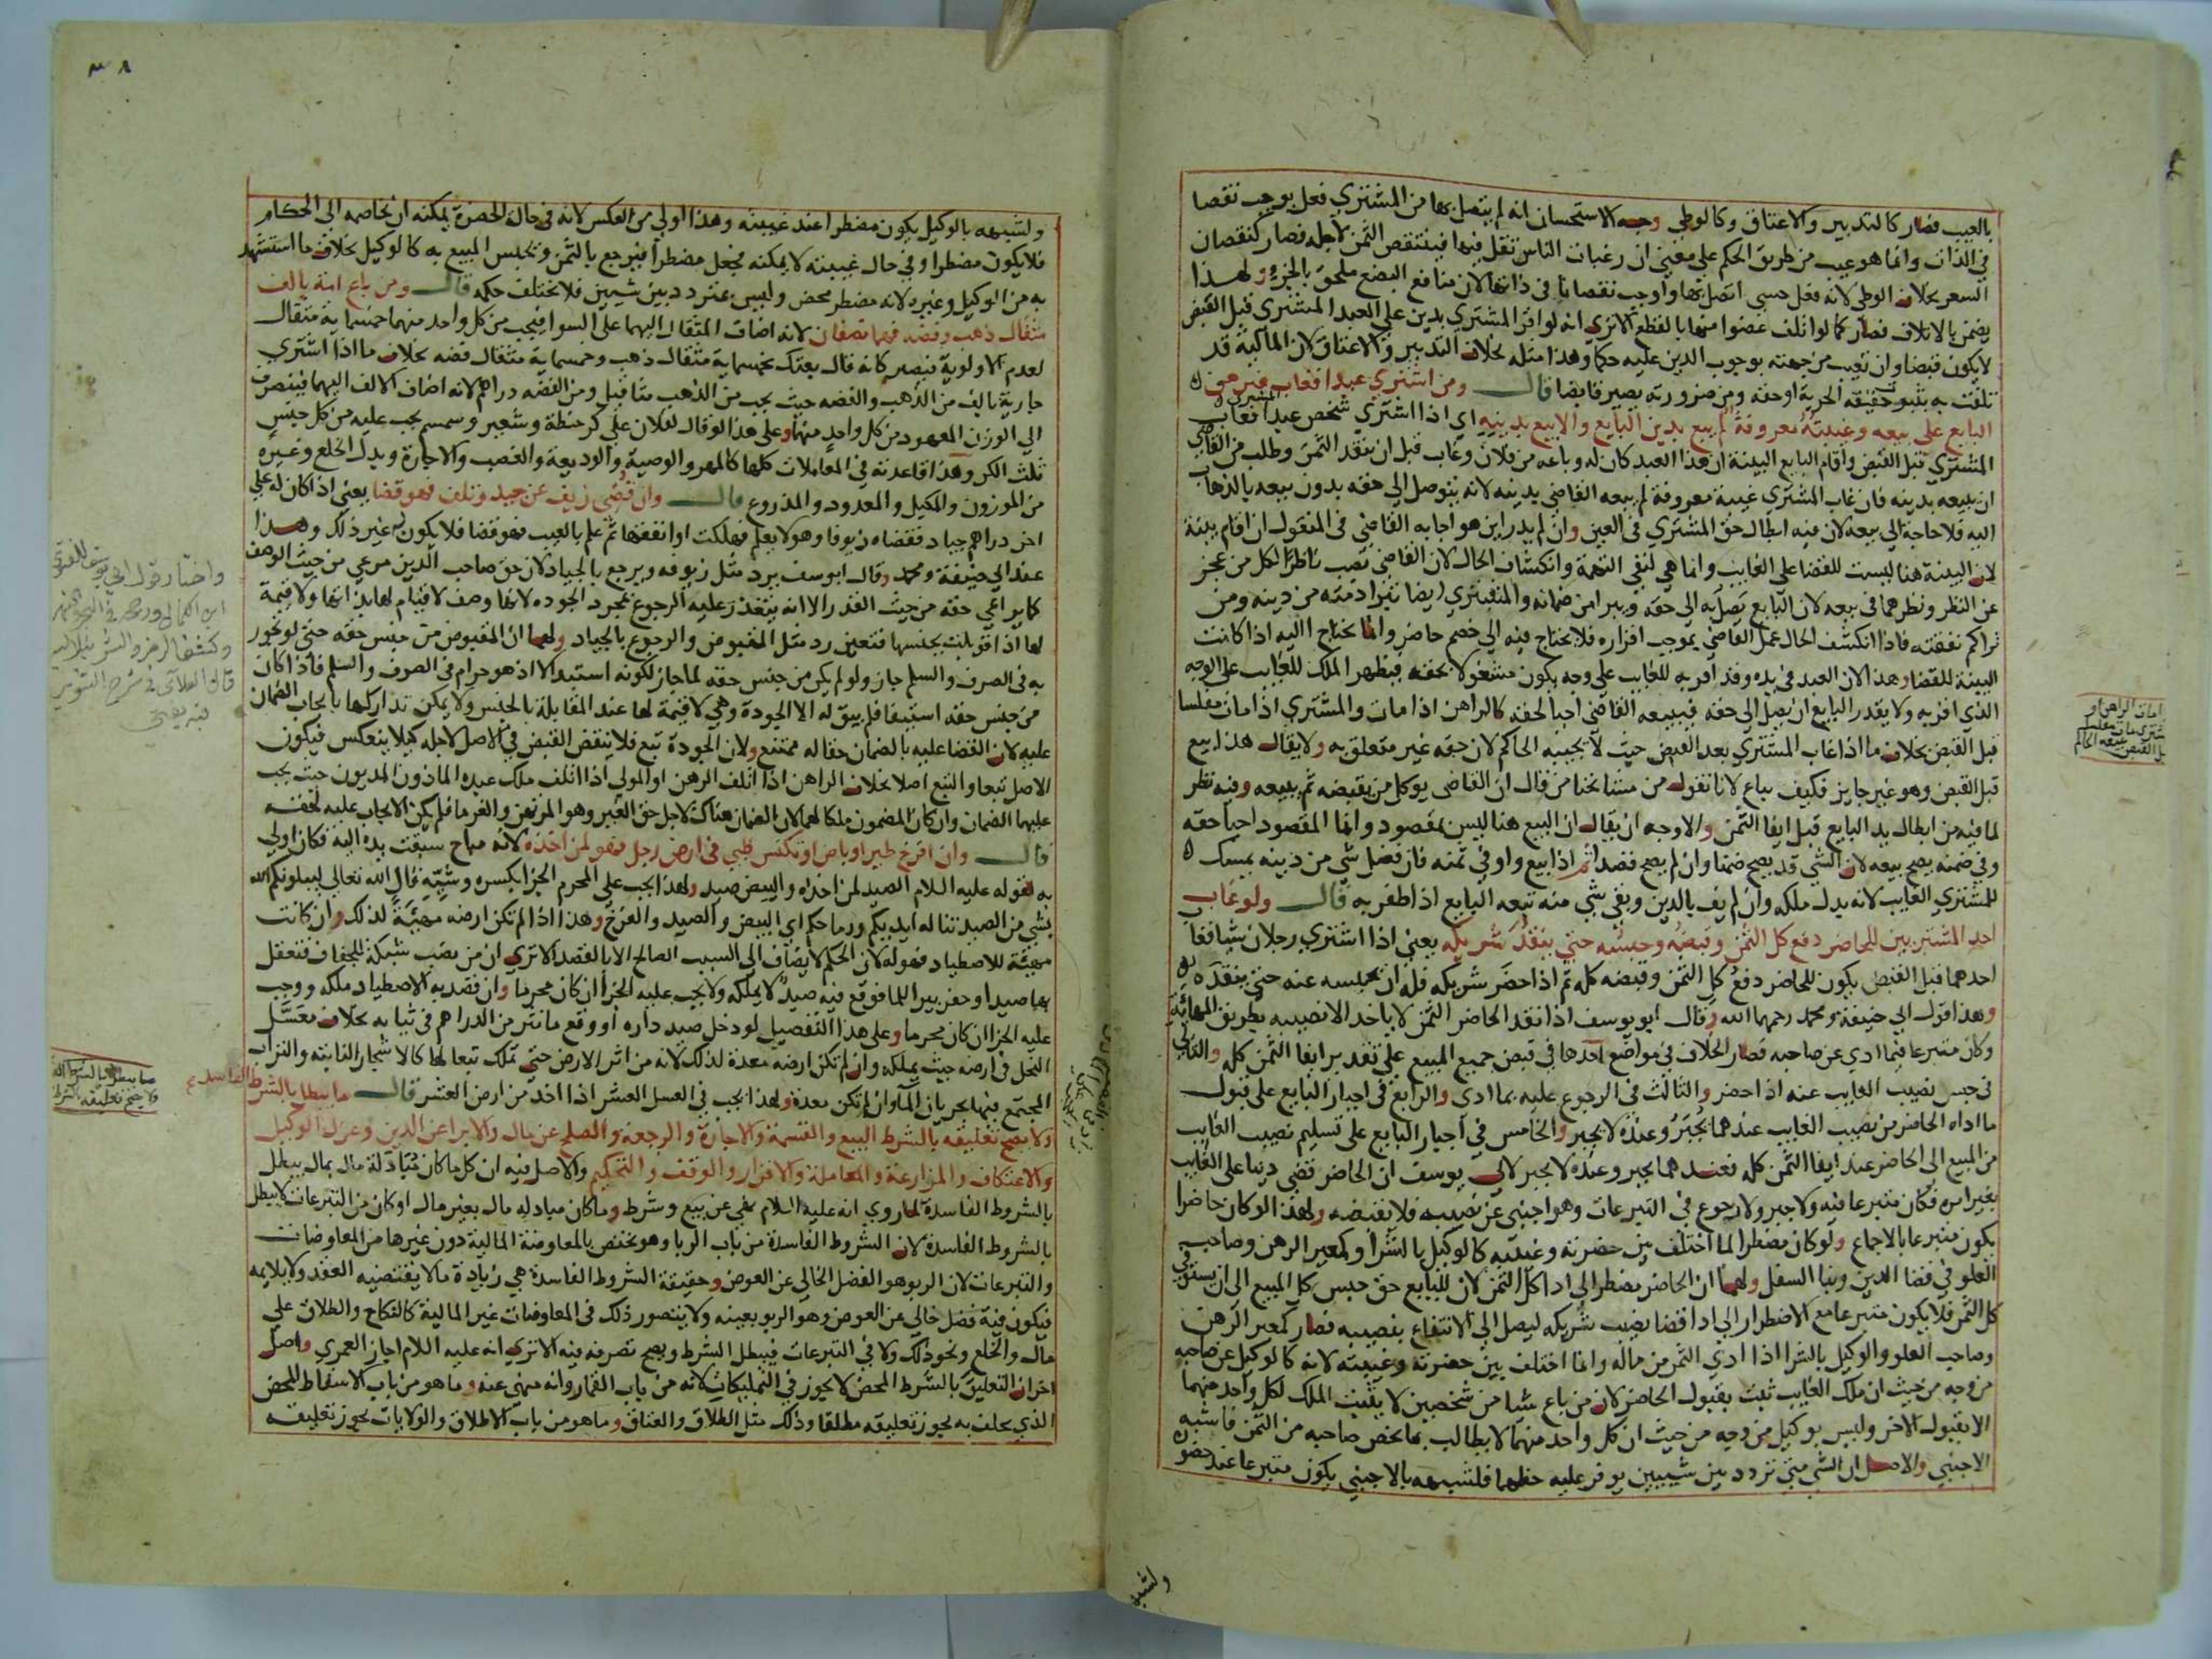 بالعيب فصار كالتدبير والاعتاق وكالوطي وجه الاستحسان انه لم يتصل بها من المشتري فعل يوجب نقصا
في الذات وانما هو عيب من طريق الحكم على معنى ان رغبات الناس تقل فيها فينتقص الثمن لاجله فصار كنقصان
السعر بخلاف الوطي لانه فعل حسي اتصل بها واوجب نقصانا في ذاتها لان منافع البضع ملحق بالجزء ولهذا
يضمن بالاتلاف فصار كما لو اتلف عضوا منها بالقطع الا تري انه لو اقر المشتري بدين على العبد المشتري قبل القبض
لا يكون قبضا وان تعيب من جهته بوجوب الدين عليه حكما وهذا مثله بخلاف التدبير والاعتاق لان المالكية قد
تلفت به بثبوت حقيقة الحرية او حقه ومن ضرورته يصير قابضا قال ومن اشتري عبدا فغاب فبرهن
البايع على بيعه وغيبته معروفة لم يبع بدين البايع والا بيع بدينه اي اذا اشتري شخص عبدا فغاب
المشتري قبل القبض واقام البايع البينة ان هذا العبد كان له وباعه من فلان وغاب قبل ان ينقد الثمن وطلب من القاضي
ان يبيعه بدينه فان غاب المشتري غيبة معروفة لم يبعه القاضي بدينه لانه يتوصل الى حقه بدون بيعه بالذهاب
اليه فلا حاجة الى بيعه لان فيه ابطال حق المشتري في العين وان لم يدر اين هو اجابه القاضي في المنقول ان اقام بينة
لان البينة هنا ليست للقضا على الغايب وانما هي لنفي التهمة وانكشاف الحال لان القاضي نصب ناظرا لكل من عجز
عن النظر ونظرهما في بيعه لان البايع يصل به الى حقه ويبرا من ضمانه والمشتري ايضا تبرا ذمته من دينه ومن
تراكم نفقته فاذا انكشف الحال عمل القاضي بموجب اقراره فلا يحتاج فيه الى خصم حاضر وانما يحتاج اليه اذا كانت
البينة للقضا وهذا لان العبد في يده وقد اقر به للغايب على وجه يكون مشغولا بحقه فيظهر الملك للغايب على الوجه
الذي اقر به ولا يقدر البايع ان يصل الى حقه فيبيعه القاضي احيا لحقه كالراهن اذا مات والمشتري اذا مات مفلسا
قبل القبض بخلاف ما اذا غاب المشتري بعد القبض حيث لا يجيبه الحاكم لان حقه غير متعلق به ولا يقال هذا بيع
قبل القبض وهو غير جايز فكيف يباع لانا نقول من مشايخنا من قال ان القاضي يوكل من يقبضه ثم يبيعه وفيه نظر
لما فيه من ابطال يد البايع قبل ايفا الثمن والاوجه ان يقال ان البيع هنا ليس بمقصود وانما المقصود احيا حقه
وفي ضمنه يصح بيعه لان الشي قد يصح ضمنا وان لم يصح قصدا ثم اذا بيع واوفي ثمنه فان فضل شي من دينه يمسك
للمشتري الغايب لانه بدل ملكه وان لم يف بالدين وبقي شي منه تبعه البايع اذا ظفر به قال ولو غاب
احد المشتريين للحاضر دفع كل الثمن وقبضه وحبسه حتى ينقد شريكه يعني اذا اشتري رجلان شيا فغاب
احدهما قبل القبض يكون للحاضر دفع كل الثمن وقبضه كله ثم اذا حضر شريكه فله ان يحبسه عنه حتى ينقده
وهذا قول ابي حنيفة ومحمد رحمهما الله وقال ابو يوسف اذا نقد الحاضر الثمن لا ياخذ الا نصيبه بطريق المهايئة
وكان متبرعا فيما ادي عن صاحبه فصار الخلاف في مواضع احدها في قبض جميع المبيع على تقدير ايفا الثمن كله والثاني
في حبس نصيب الغايب عنه اذا حضر والثالث في الرجوع عليه بما ادي والرابع في اجبار البايع على قبول
ما اداه الحاضر من نصيب الغايب عندهما يجبر وعنده لا يجبر والخامس في اجبار البايع على تسليم نصيب الغايب
من المبيع الى الحاضر عند ايفا الثمن كله فعندهما يجبر وعنده لا يجبر لابي يوسف ان الحاضر قضى دينا على الغايب
بغير امره فكان متبرعا فيه ولا جبر ولا رجوع في التبرعات وهو اجنبي عن نصيبه فلا يقبضه ولهذا لو كان حاضرا
يكون متبرعا بالاجماع ولو كان مضطرا لما اختلف بين حضرته وغيبته كالوكيل بالشرا وكمعير الرهن وصاحب
العلو في قضا الدين وبنا السفل ولهما ان الحاضر مضطر الى ادا كل الثمن لان للبايع حق حبس كل المبيع الى ان يستوفي
كل الثمن فلا يكون متبرعا مع الاضطرار الى ادا قضا نصيب شريكه ليصل الى الانتفاع بنصيبه فصار كمعير الرهن
وصاحب العلو والوكيل بالشرا اذا ادي الثمن من ماله وانما اختلف بين حضرته وغيبته لانه كالوكيل عن صاحبه
من وجه من حيث ان ملك الغايب ثبت بقبول الحاضر لان من باع شيا من شخصين لا يثبت الملك لكل واحد منهما
الا بقبول الاخر وليس بوكيل من وجه من حيث ان كل واحد منهما لا يطالب بما يخص صاحبه من الثمن فاشبه
الاجنبي والاصل ان الشي متى تردد بين شيئين يوفر عليه حظهما فلشبهه بالاجنبي يكون متبرعا عند حضوره
ولشبهه
ولشبهه بالوكيل يكون مضطرا عند غيبته وهذا اولى من العكس لانه في حال الحضرة يمكنه ان يخاصمه الى الحكام
فلا يكون مضطرا وفي حال غيبته لا يمكنه فجعل مضطرا فيرجع بالثمن ويحبس المبيع به كالوكيل بخلاف ما استشهد
به من الوكيل وغيره لانه مضطر محض وليس بمتردد بين شيئين فلا يختلف حكمه قال ومن باع امة بالف
مثقال ذهب وفضه فهما نصفان لانه اضاف المثقال اليهما على السوا فيجب من كل واحد منهما خمسماية مثقال
لعدم الاولوية فيصير كانه قال بعتك بخمسماية مثقال ذهب وخمسماية مثقال فضه بخلاف ما اذا اشتري
جارية بالف من الذهب والفضه حيث يجب من الذهب مثاقيل ومن الفضه دراهم لانه اضاف الالف اليهما فينصرف
الى الوزن المعهود من كل واحد منهما وعلى هذا لو قال لفلان علي كر حنطة وشعير وسمسم يجب عليه من كل جنس
ثلث الكر وهذا قاعدته في المعاملات كلها كالمهر والوصية والوديعة والغصب والاجارة وبدل الخلع وغيره
من الموزون والمكيل والمعدود والمذروع قال وان قضى زيف عن جيد وتلف فهو قضا يعني اذا كان له على
اخر دراهم جياد فقضاه زيوفا وهو لا يعلم فهلكت او انفقها ثم علم بالعيب فهو قضا فلا يكون له غير ذلك وهذا
عند ابي حنيفة ومحمد وقال ابو يوسف يرد مثل زيوفه ويرجع بالجياد لان حق صاحب الدين مرعي من حيث الوصف
كما يراعي حقه من حيث القدر الا انه يتعذر عليه الرجوع بمجرد الجوده لانها وصف لا قيام لها بذاتها ولا قيمة
لها اذا قوبلت بجنسها فتعين رد مثل المقبوض والرجوع بالجياد ولهما ان المقبوض من جنس حقه حتى لو تجوز
به في الصرف والسلم جاز ولو لم يكن من جنس حقه لما جاز لكونه استبدالا اذ هو حرام في الصرف والسلم فاذا كان
من جنس حقه استيفا فلم يبق له الا الجودة وهي لا قيمة لها عند المقابلة بالجنس ولا يمكن تداركها بايجاب الضمان
عليه لان القضا عليه بالضمان حقا له ممتنع ولان الجودة تبع فلا ينقض القبض في الاصل لاجله كيلا ينعكس فيكون
الاصل تبعا والتبع اصلا بخلاف الراهن اذا اتلف الرهن او المولى اذا اتلف ملك عبده الماذون المديون حيث يجب
عليهما الضمان وان كان المضمون ملكا لهما لان الضمان هناك لاجل حق الغير وهو المرتهن والغرما فلم يكن الايجاب عليه لحقه
قال وان افرخ طير او باض او تكنس ظبي في ارض رجل فهو لمن اخذه لانه مباح سبقت يده اليه فكان اولى
به لقوله عليه السلام الصيد لمن اخذه والبيض صيد ولهذا يجب على المحرم الجزا بكسره وشيه قال الله تعالى ليبلونكم الله
بشي من الصيد تناله ايديكم ورماحكم اي البيض والصيد والفرخ وهذا اذا لم تكن ارضه مهيئة لذلك وان كانت
مهيئة للاصطياد فهو له لان الحكم لا يضاف الى السبب الصالح الا بالقصد الا تري ان من نصب شبكة للجفاف فتعقل
بها صيد او حفر بيرا للما فوقع فيه صيد لا يملكه ولا يجب عليه الجزا ان كان محرما وان قصد به الاصطياد ملكه ووجب
عليه الجزا ان كان محرما وعلى هذا التفصيل لو دخل صيد داره او وقع ما نثر من الدراهم في ثيابه بخلاف معسل
النحل في ارضه حيث يملكه وان لم تكن ارضه معدة لذلك لانه من اثر الارض حتى تملك تبعا لها كالاشجار النابتة والتراب
المجتمع فيها بجريان الما وان لم تكن معدة ولهذا يجب في العسل العشر اذا اخذ من ارض العشر قال ما يبطل بالشرط الفاسد
ولا يصح تعليقه بالشرط البيع والقسمة والاجارة والرجعة والصلح عن مال والابرا عن الدين وعزل الوكيل
والاعتكاف والمزارعة والمعاملة والاقرار والوقف والتحكيم والاصل فيه ان كل ما كان مبادلة مال بمال يبطل
بالشروط الفاسدة لما روي انه عليه السلام نهى عن بيع وشرط وما كان مبادله مال بغير مال او كان من التبرعات لا يبطل
بالشروط الفاسدة لان الشروط الفاسدة من باب الربا وهو يختص بالمعاوضة المالية دون غيرها من المعاوضات
والتبرعات لان الربو هو الفضل الخالي عن العوض وحقيقة الشروط الفاسدة هي زيادة ما لا يقتضيه العقد ولا يلايمه
فيكون فيه فضل خالي عن العوض وهو الربو بعينه ولا يتصور ذلك في المعاوضات غير المالية كالنكاح والطلاق على
مال والخلع ونحو ذلك ولا في التبرعات فيبطل الشرط ويصح تصرفه فيه الا تري انه عليه السلام اجاز العمري واصل
اخر ان التعليق بالشرط المحض لا يجوز في التمليكات لانه من باب القمار وانه منهي عنه وما هو من باب الاسقاط المحض
الذي يحلف به يجوز تعليقه مطلقا وذلك مثل الطلاق والعتاق وما هو من باب الاطلاق والولايات يجوز تعليقه